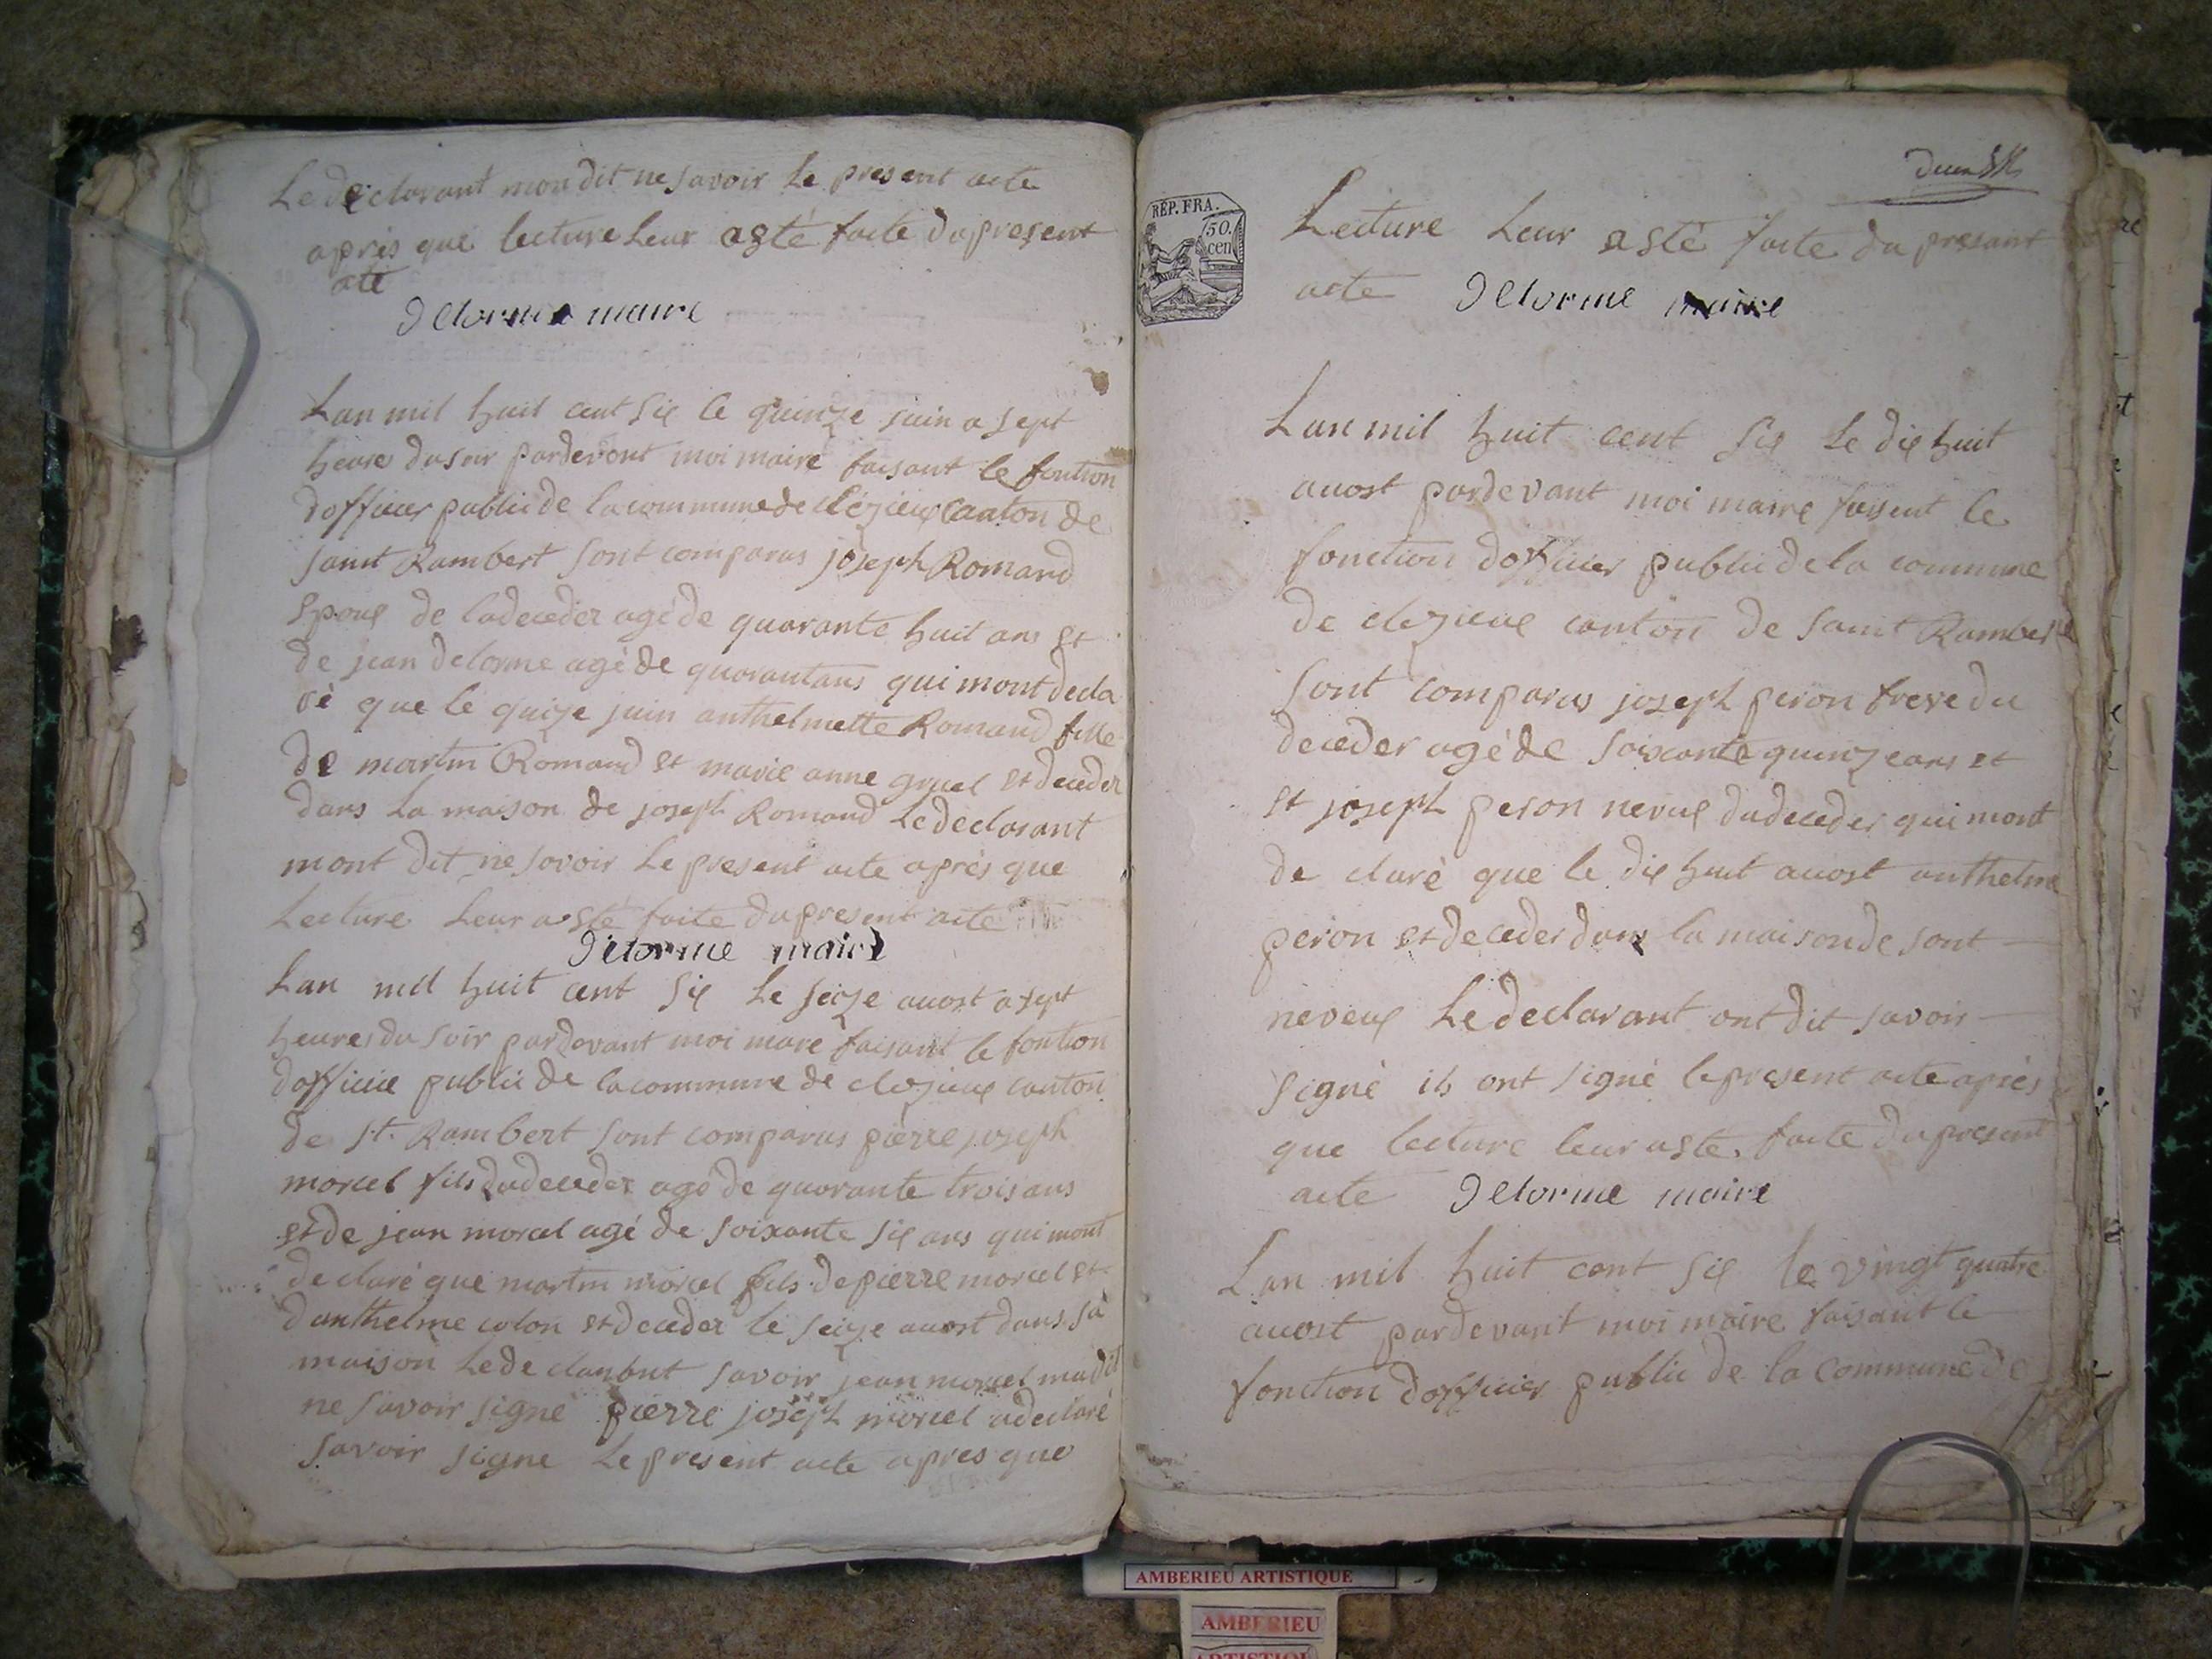 Le declarant mon dit ne savoir le present acte
après que lecture leur asté faite du present
ate
Delorme maire
Lan mil huit cent six le quinze juin a sept
heure du soir pardevont moi maire faisant le fontion
dofficier public de la commune de clézieux canton de
saint Rambert sont comparus joseph Romand
epoux de la deceder agé de quarante huit ans et
de jean delorme agé de quarantans qui mont decla
ré que le quize juin anthelmette Romand fille
de martin Romand et marie anne gruel et deceder
dans la maison de joseph Romand le declarant
mont dit ne sovoir le present acte après que
Lecture leur asté faite du present acte
Delorme maire
Lan mil huit cent six le seize auost a sept
heures du soir pardevant moi mare faisant le fontion
dofficie public de la commune de clezieux canton
de st. Rambert sont comparus pierre joseph
morcel fils du deceder agé de quarante trois ans
et de jean morcel agé de soixante six ans qui mont
declaré que martin morcel fils de pierre morcel et
danthelme colon et deceder le seize auost dans sa
maison le de savoir jean morcel madit
ne savoir signé pierre joseph morcel a declaré
savoir signe le present acte apres que
REP. FRA.
50.
cen
Lecture leur asté faite du presant
acte Delorme maire
Lan mil huit cent six le dix huit
auost pardevant moi maire faisent le
fonction dofficier public de la commune
de clezieux canton de saint Rambert
sont comparus joseph peron frere du
deceder agé de soixante quinze ans et
et joseph peron neveux du deceder qui mont
de claré que le dix huit auost anthelme
peron et deceder dans la maison de sont
neveux le declarant ont dit savoir
signé ils ont signé le present acte après
que lecture leur asté faite du present
acte Delorme maire
Lan mil huit cent six le vingt quatre
auost pardevant moi maire faisant le
fonction dofficier public de la commune de
AMBERIEU ARTISTIQUE
AMBERIEU
ARTISTIQUE